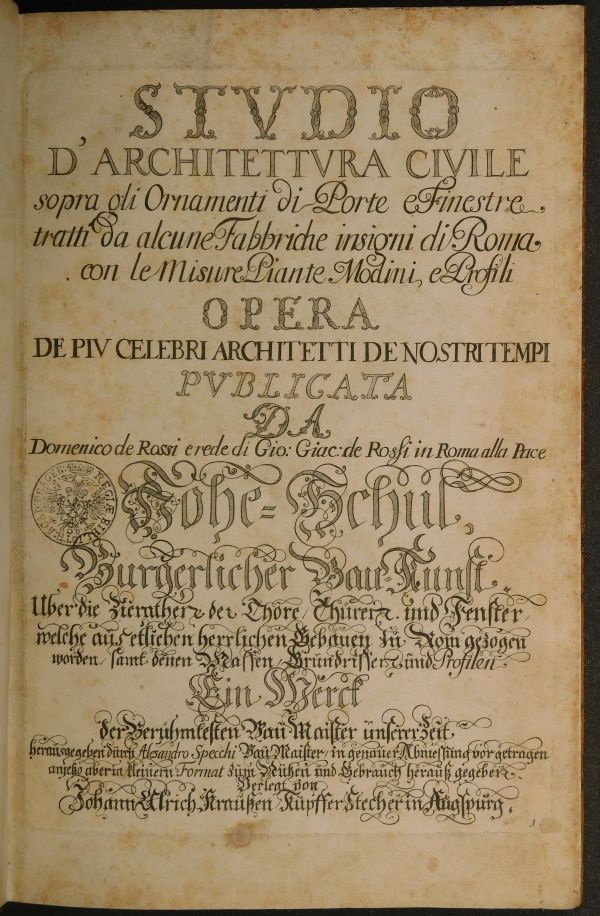 STVDIO
D'ARCHITETTVRA CIVILE
sopra gli Ornamenti di Porte e Finestre
tratti da alcune Fabbriche insigni di Roma
con le Misure Piante Modini, e Profili
OPERA
DE PIV CELEBRI ARCHITETTI DE NOSTRI TEMPI
PVBLICATA
DA
Domenico de Rossi erede di Gio: Giac: de Rossi in Roma alla Pace
Hohe=Schul,
Burgerlicher Bau=Kunst.
Uber die Zierathen der Thöre / Thüren und Fenster /
welche auß etlichen herrlichen Gebäuen zu Rom gezogen
worden / samt denen Massen / Grundrissen und Profilen
Ein Werck
der Berühmtesten Bau Maister unserer Zeit
herausgegeben durch Alesandro Specchi Bau Maister / in genauer Abmessung vorgetragen
anjetzo aber in kleinern Format zum Nutzen und Gebrauch herauß gegeben
Verlegt von
Johann Ulrich Kraußen / Kupffer Stecher in Augspurg.